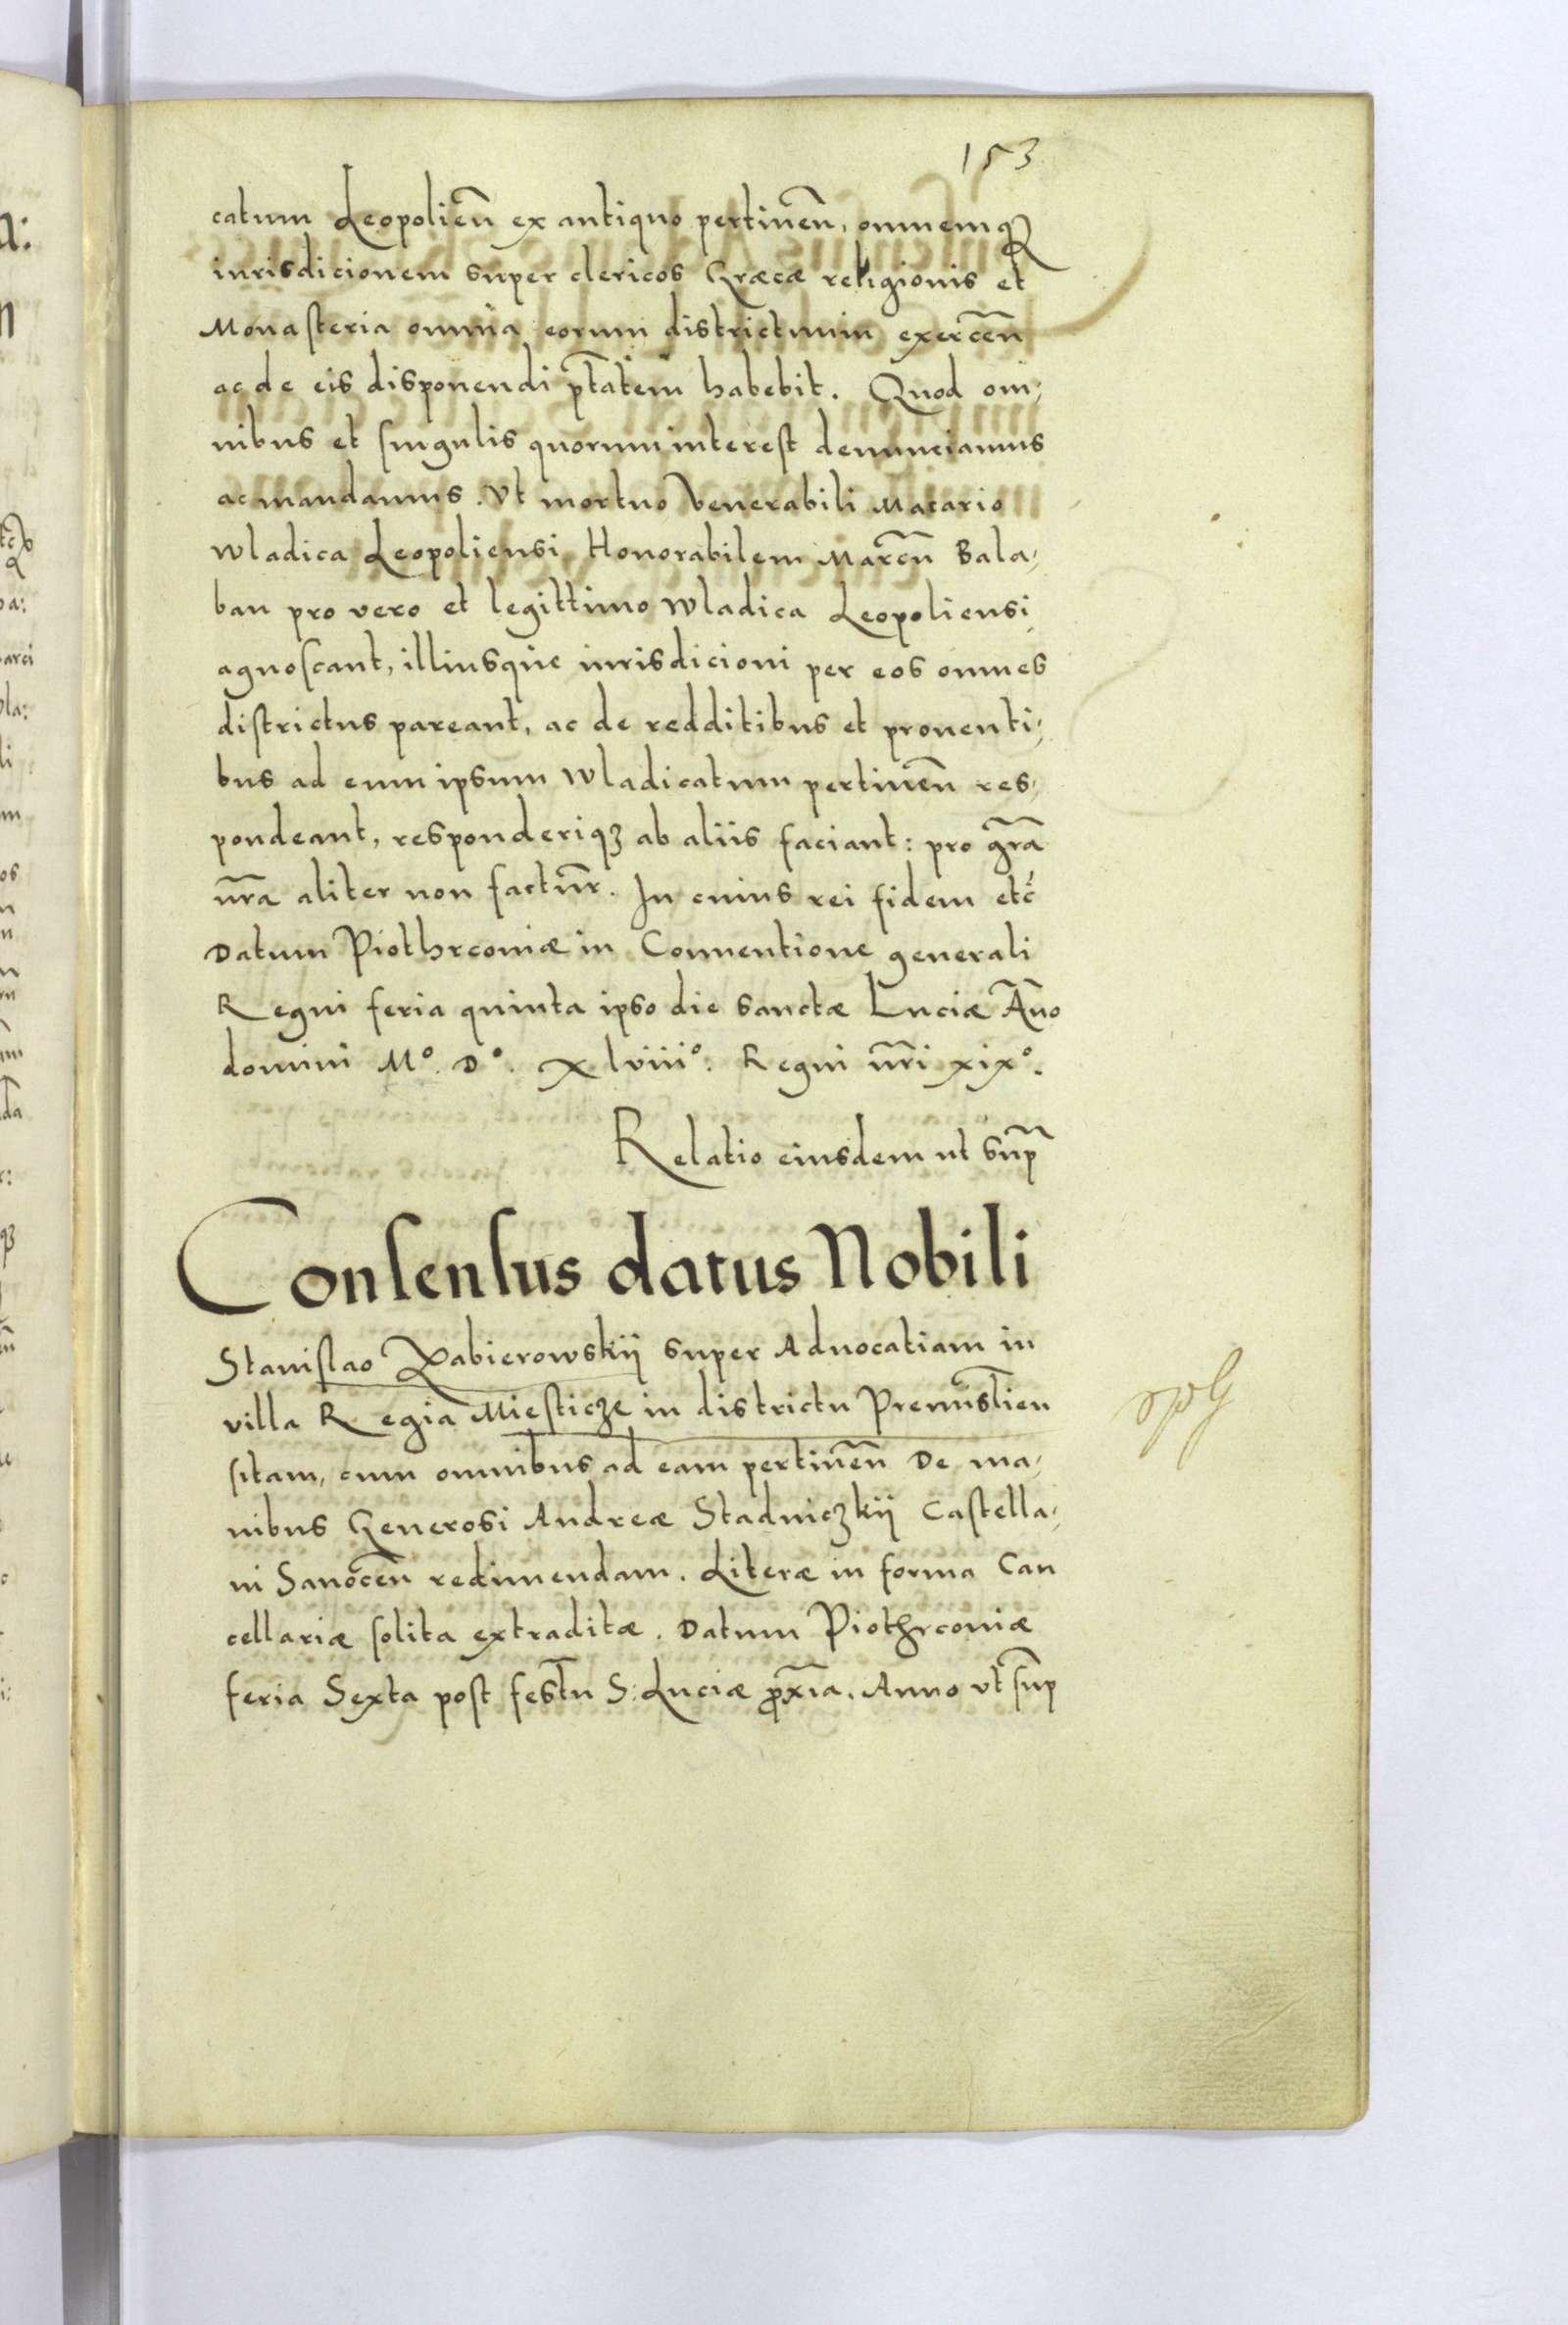 153
catum Leopolień ex antiquo pertineñ, omnemq
iurisdicionem super clericos Græcæ religionis et
Monasteria omnia eorum districtuum exerceñ
ac de eis disponendi ptãtem habebit. Quod om,
nibus et singulis quorum interest denunciamus
ac mandamus. Vt mortuo Venerabili Macario
Wladica Leopoliensi, Honorabilem Marcũ Bala,
ban pro vero et legittimo Wladica Leopoliensi
agnoscant, illiusque iurisdicioni per eos omnes
districtus pareant, ac de redditibus et prouenti,
bus ad eum ipsum Wladicatum pertineñ res,
pondeant, responderiqȝ ab aliis faciant: pro grã
nrã aliter non factur̃. In cuius rei fidem etc̃
Datum Piothrconiæ in Conuentione generali
Regni feria quinta ipso die sanctæ Luciæ Ãno
domini M°. D°. Xlviii°. Regni nrĩ xix°.
Relatio eiusdem ut sup̃
Consensus datus Nobili
Stanislao Zabierowskij super Aduocatiam in
villa Regia Miesticze in districtu Premistlien
sitam, cum omnibus ad eam pertineñ De ma,
nibus Generosi Andreæ Stadniczkij Castella,
ni Sanoceñ redimendam. Literæ in forma Can
cellariæ solita extraditæ. Datum Piothrconiæ
feria Sexta post festũ S: Luciæ prox̃ia. Anno vt sup̃